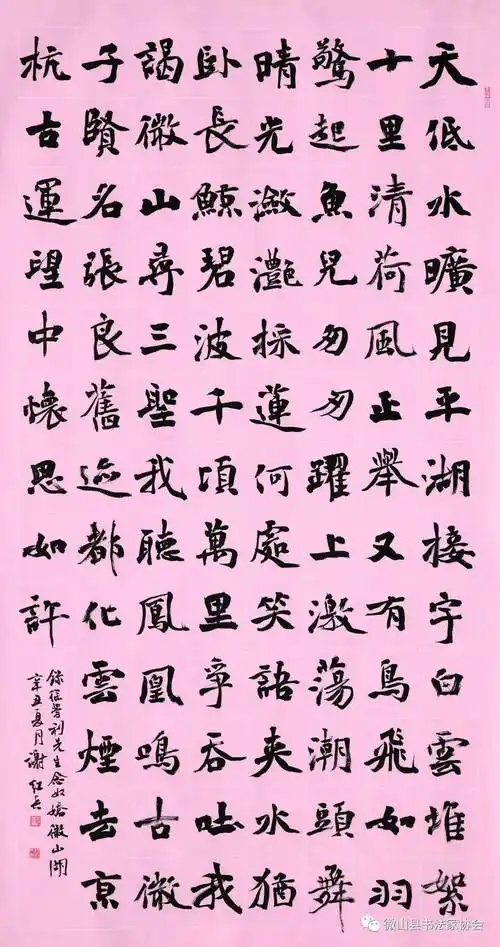 天低水曠見平湖接宇白雲堆絮
十里清荷風正舉又有鳥飛如羽
驚起魚兒匆匆躍上激蕩潮頭舞
晴光瀲灔採蓮何處笑語夾水猶
臥長鯨碧波千頃萬里爭吞吐我
謁微山尋三聖我聽鳳凰鳴古微
子賢名張良舊迹都化雲煙去京
杭古運望中懷思如許
錄利先生念奴嬌微山湖
辛丑夏月謝紅
微山县书法家协会